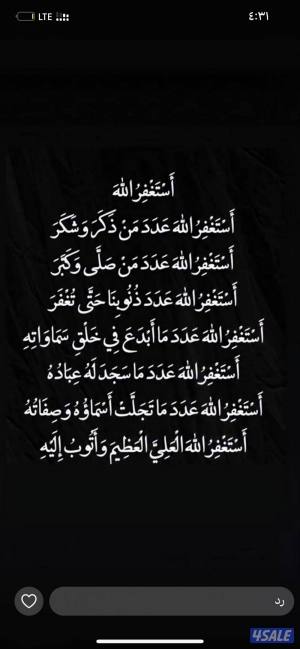 LTE
٤:٣١
أَسْتَغْفِرُ اللهَ
أَسْتَغْفِرُ اللهَ عَدَدَ مَنْ ذَكَرَ وَشَكَرَ
أَسْتَغْفِرُ اللهَ عَدَدَ مَنْ صَلَّى وَكَبَّرَ
أَسْتَغْفِرُ اللهَ عَدَدَ ذُنُوبِنَا حَتَّى تُغْفَرَ
أَسْتَغْفِرُ اللهَ عَدَدَ مَا أَبْدَعَ فِي خَلْقِ سَمَاوَاتِهِ
أَسْتَغْفِرُ اللهَ عَدَدَ مَا سَجَدَ لَهُ عِبَادُهُ
أَسْتَغْفِرُ اللهَ عَدَدَ مَا تَجَلَّتْ أَسْمَاؤُهُ وَصِفَاتُهُ
أَسْتَغْفِرُ اللهَ الْعَلِيَّ الْعَظِيمَ وَأَتُوبُ إِلَيْهِ
رد
4SALE